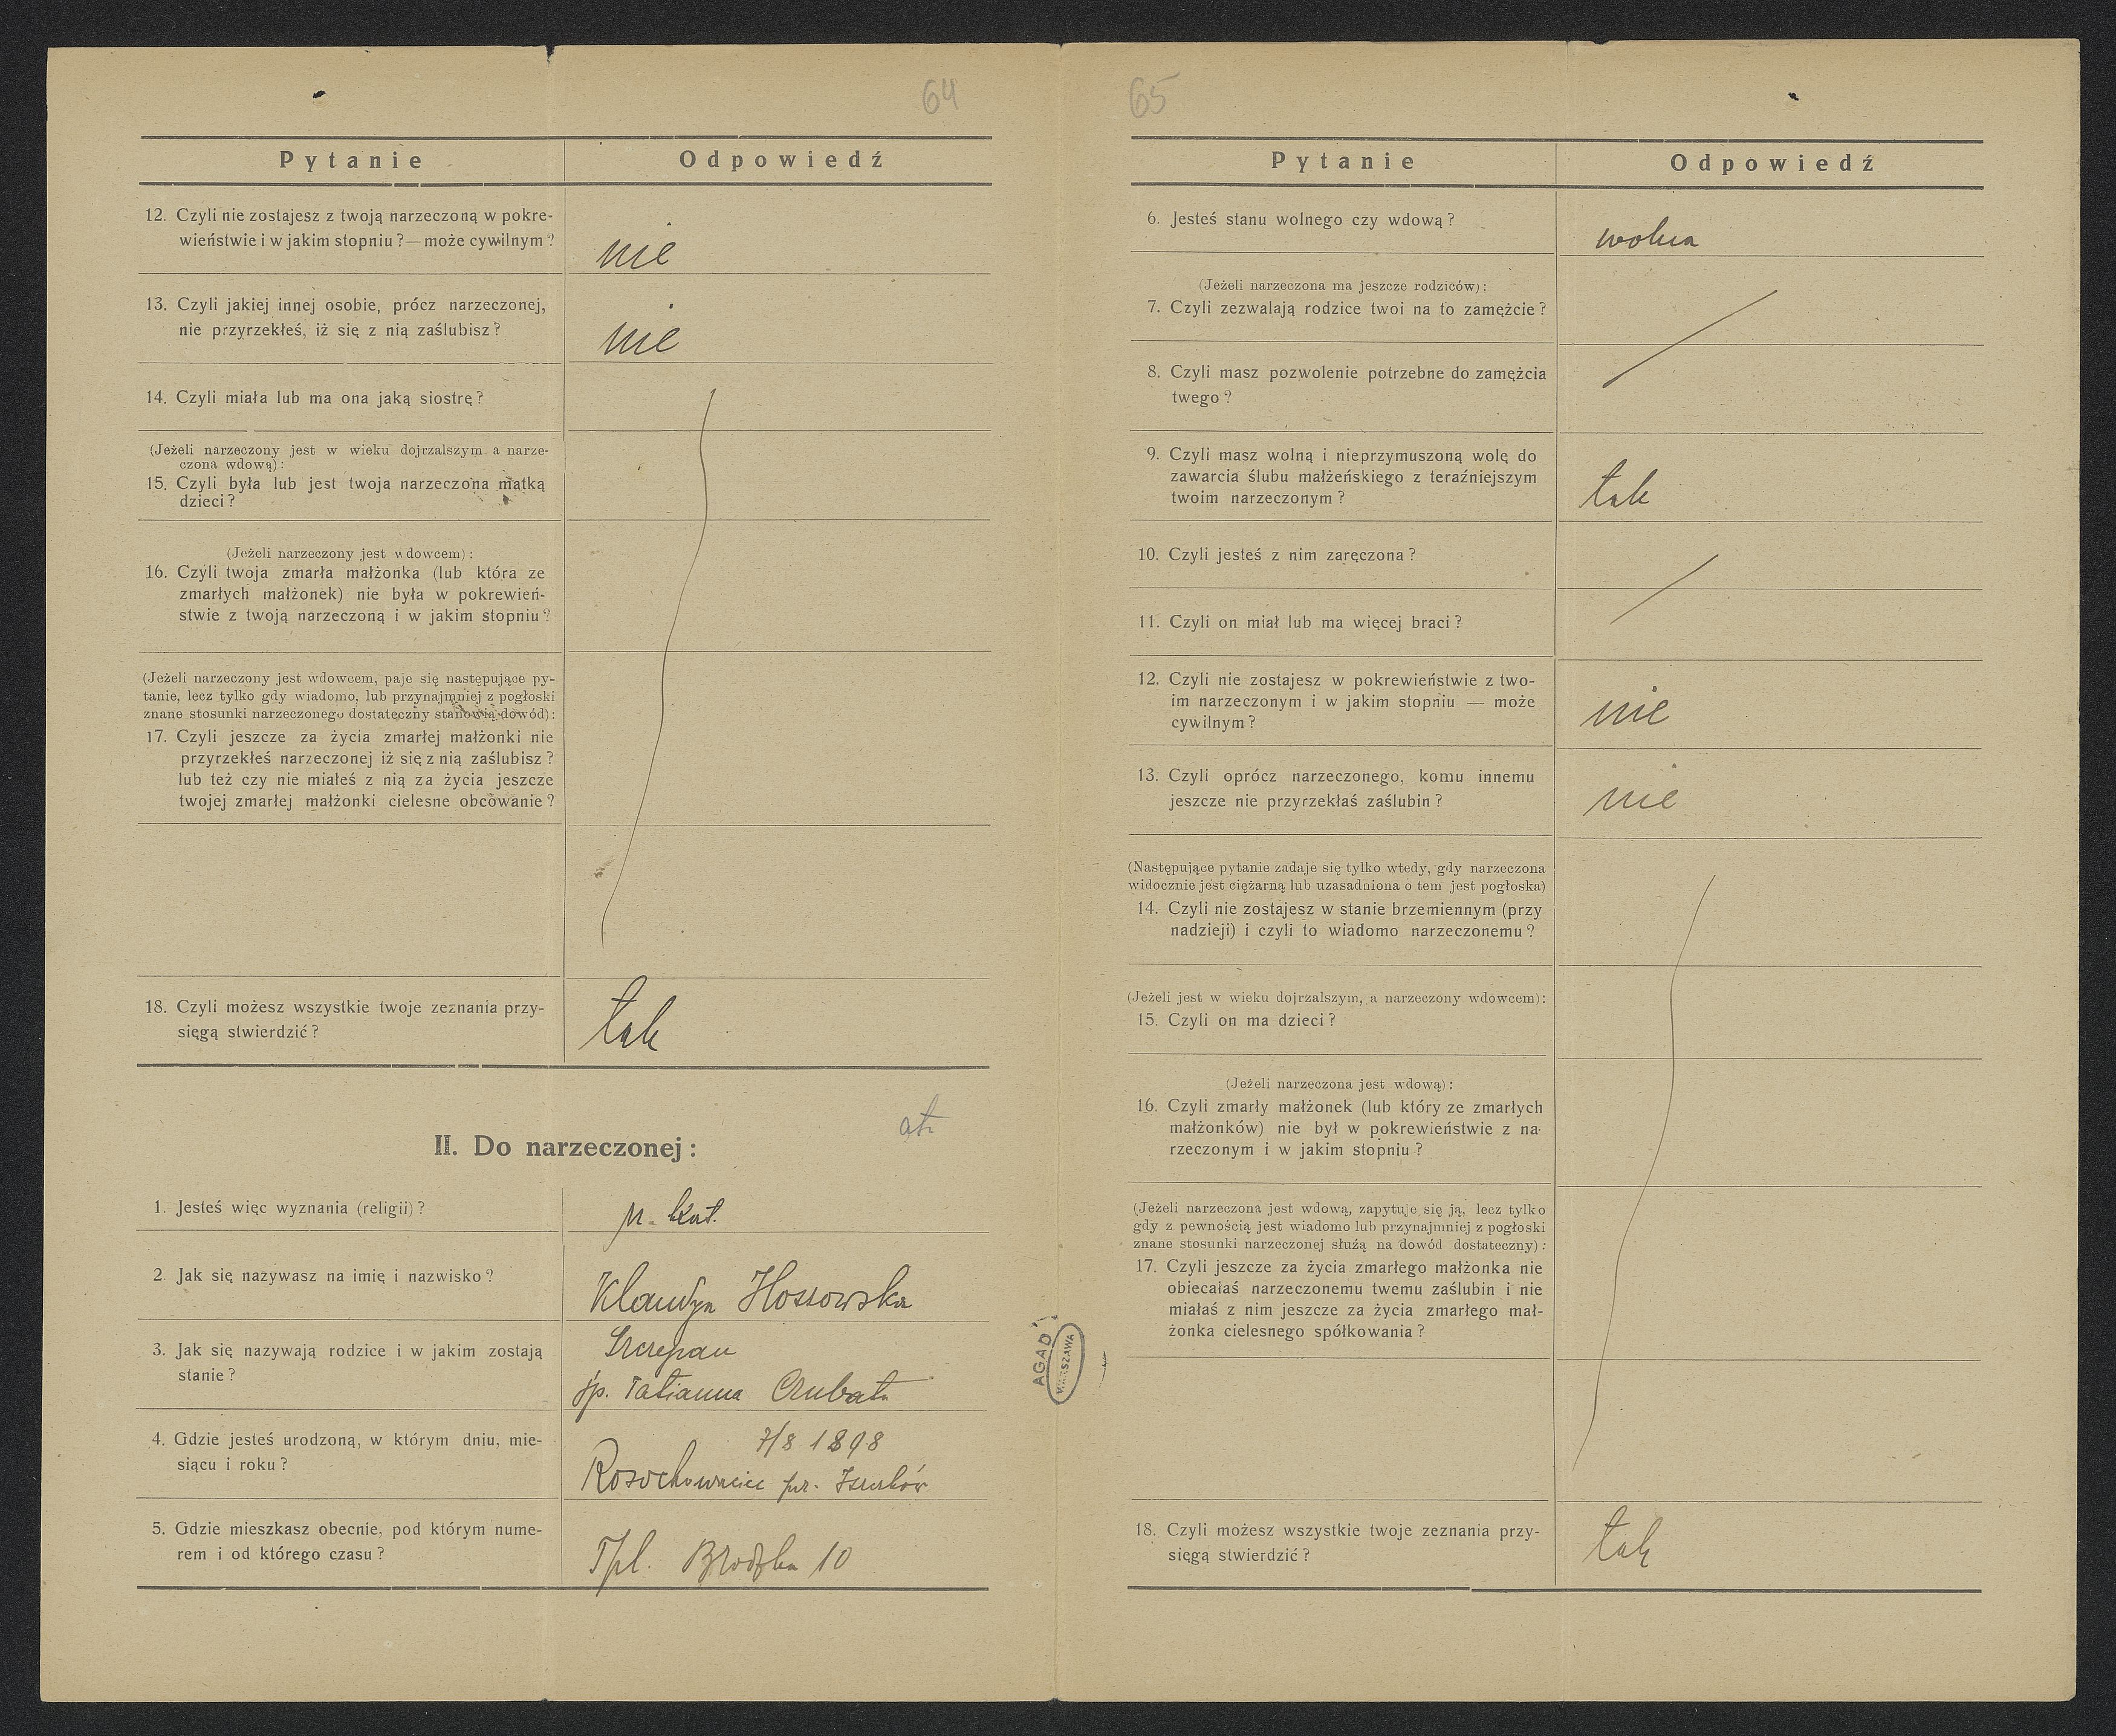 64
Pytanie Odpowiedź
12. Czyli nie zostajesz z twoją narzeczoną w pokre-
wieństwie i w jakim stopniu ?— może cywilnym ?
nie
13. Czyli jakiej innej osobie, prócz narzeczonej,
nie przyrzekłeś, iż się z nią zaślubisz ?
nie
14. Czyli miała lub ma ona jaką siostrę ?
(Jeżeli narzeczony jest w wieku dojrzalszym a narze-
czona wdową) :
15. Czyli była lub jest twoja narzeczona matką
dzieci ?
(Jeżeli narzeczony jest wdowcem) :
16. Czyli twoja zmarła małżonka (lub która ze
zmarłych małżonek) nie była w pokrewień-
stwie z twoją narzeczoną i w jakim stopniu ?
(Jeżeli narzeczony jest wdowcem, paje się następujące py-
tanie, lecz tylko gdy wiadomo, lub przynajmniej z pogłoski
znane stosunki narzeczonego dostateczny stanowią dowód) :
17. Czyli jeszcze za życia zmarłej małżonki nie
przyrzekłeś narzeczonej iż się z nią zaślubisz ?
lub też czy nie miałeś z nią za życia jeszcze
twojej zmarłej małżonki cielesne obcowanie ?
18. Czyli możesz wszystkie twoje zeznania przy-
sięgą stwierdzić ?
tak
II. Do narzeczonej :
1. Jesteś więc wyznania (religii) ?
kat.
2. Jak się nazywasz na imię i nazwisko ?
Klaudya Hossowska
3. Jak się nazywają rodzice i w jakim zostają
stanie ?
Szczepan
śp. Tatianna
4. Gdzie jesteś urodzoną, w którym dniu, mie-
siącu i roku ?
7/8 1898
Rosochowaciec
5. Gdzie mieszkasz obecnie, pod którym nume-
rem i od którego czasu ?
Tpl. Brodzka 10
AGAD
WARSZAWA
65
Pytanie Odpowiedź
6. Jesteś stanu wolnego czy wdową ?
wolna
(Jeżeli narzeczona ma jeszcze rodziców) :
7. Czyli zezwalają rodzice twoi na to zamęźcie ?
8. Czyli masz pozwolenie potrzebne do zamęźcia
twego ?
9. Czyli masz wolną i nieprzymuszoną wolę do
zawarcia ślubu małżeńskiego z teraźniejszym
twoim narzeczonym ?
tak
10. Czyli jesteś z nim zaręczona ?
11. Czyli on miał lub ma więcej braci ?
12. Czyli nie zostajesz w pokrewieństwie z two-
im narzeczonym i w jakim stopniu — może
cywilnym ?
nie
13. Czyli oprócz narzeczonego, komu innemu
jeszcze nie przyrzekłaś zaślubin ?
nie
(Następujące pytanie zadaje się tylko wtedy, gdy narzeczona
widocznie jest ciężarną lub uzasadniona o tem jest pogłoska)
14. Czyli nie zostajesz w stanie brzemiennym (przy
nadzieji) i czyli to wiadomo narzeczonemu ?
(Jeżeli jest w wieku dojrzalszym, a narzeczony wdowcem) :
15. Czyli on ma dzieci ?
(Jeżeli narzeczona jest wdową) :
16. Czyli zmarły małżonek (lub który ze zmarłych
małżonków) nie był w pokrewieństwie z na-
rzeczonym i w jakim stopniu ?
(Jeżeli narzeczona jest wdową, zapytuje się ją, lecz tylko
gdy z pewnością jest wiadomo lub przynajmniej z pogłoski
znane stosunki narzeczonej służą na dowód dostateczny) :
17. Czyli jeszcze za życia zmarłego małżonka nie
obiecałaś narzeczonemu twemu zaślubin i nie
miałaś z nim jeszcze za życia zmarłego mał-
żonka cielesnego spółkowania ?
18. Czyli możesz wszystkie twoje zeznania przy-
sięgą stwierdzić ?
tak